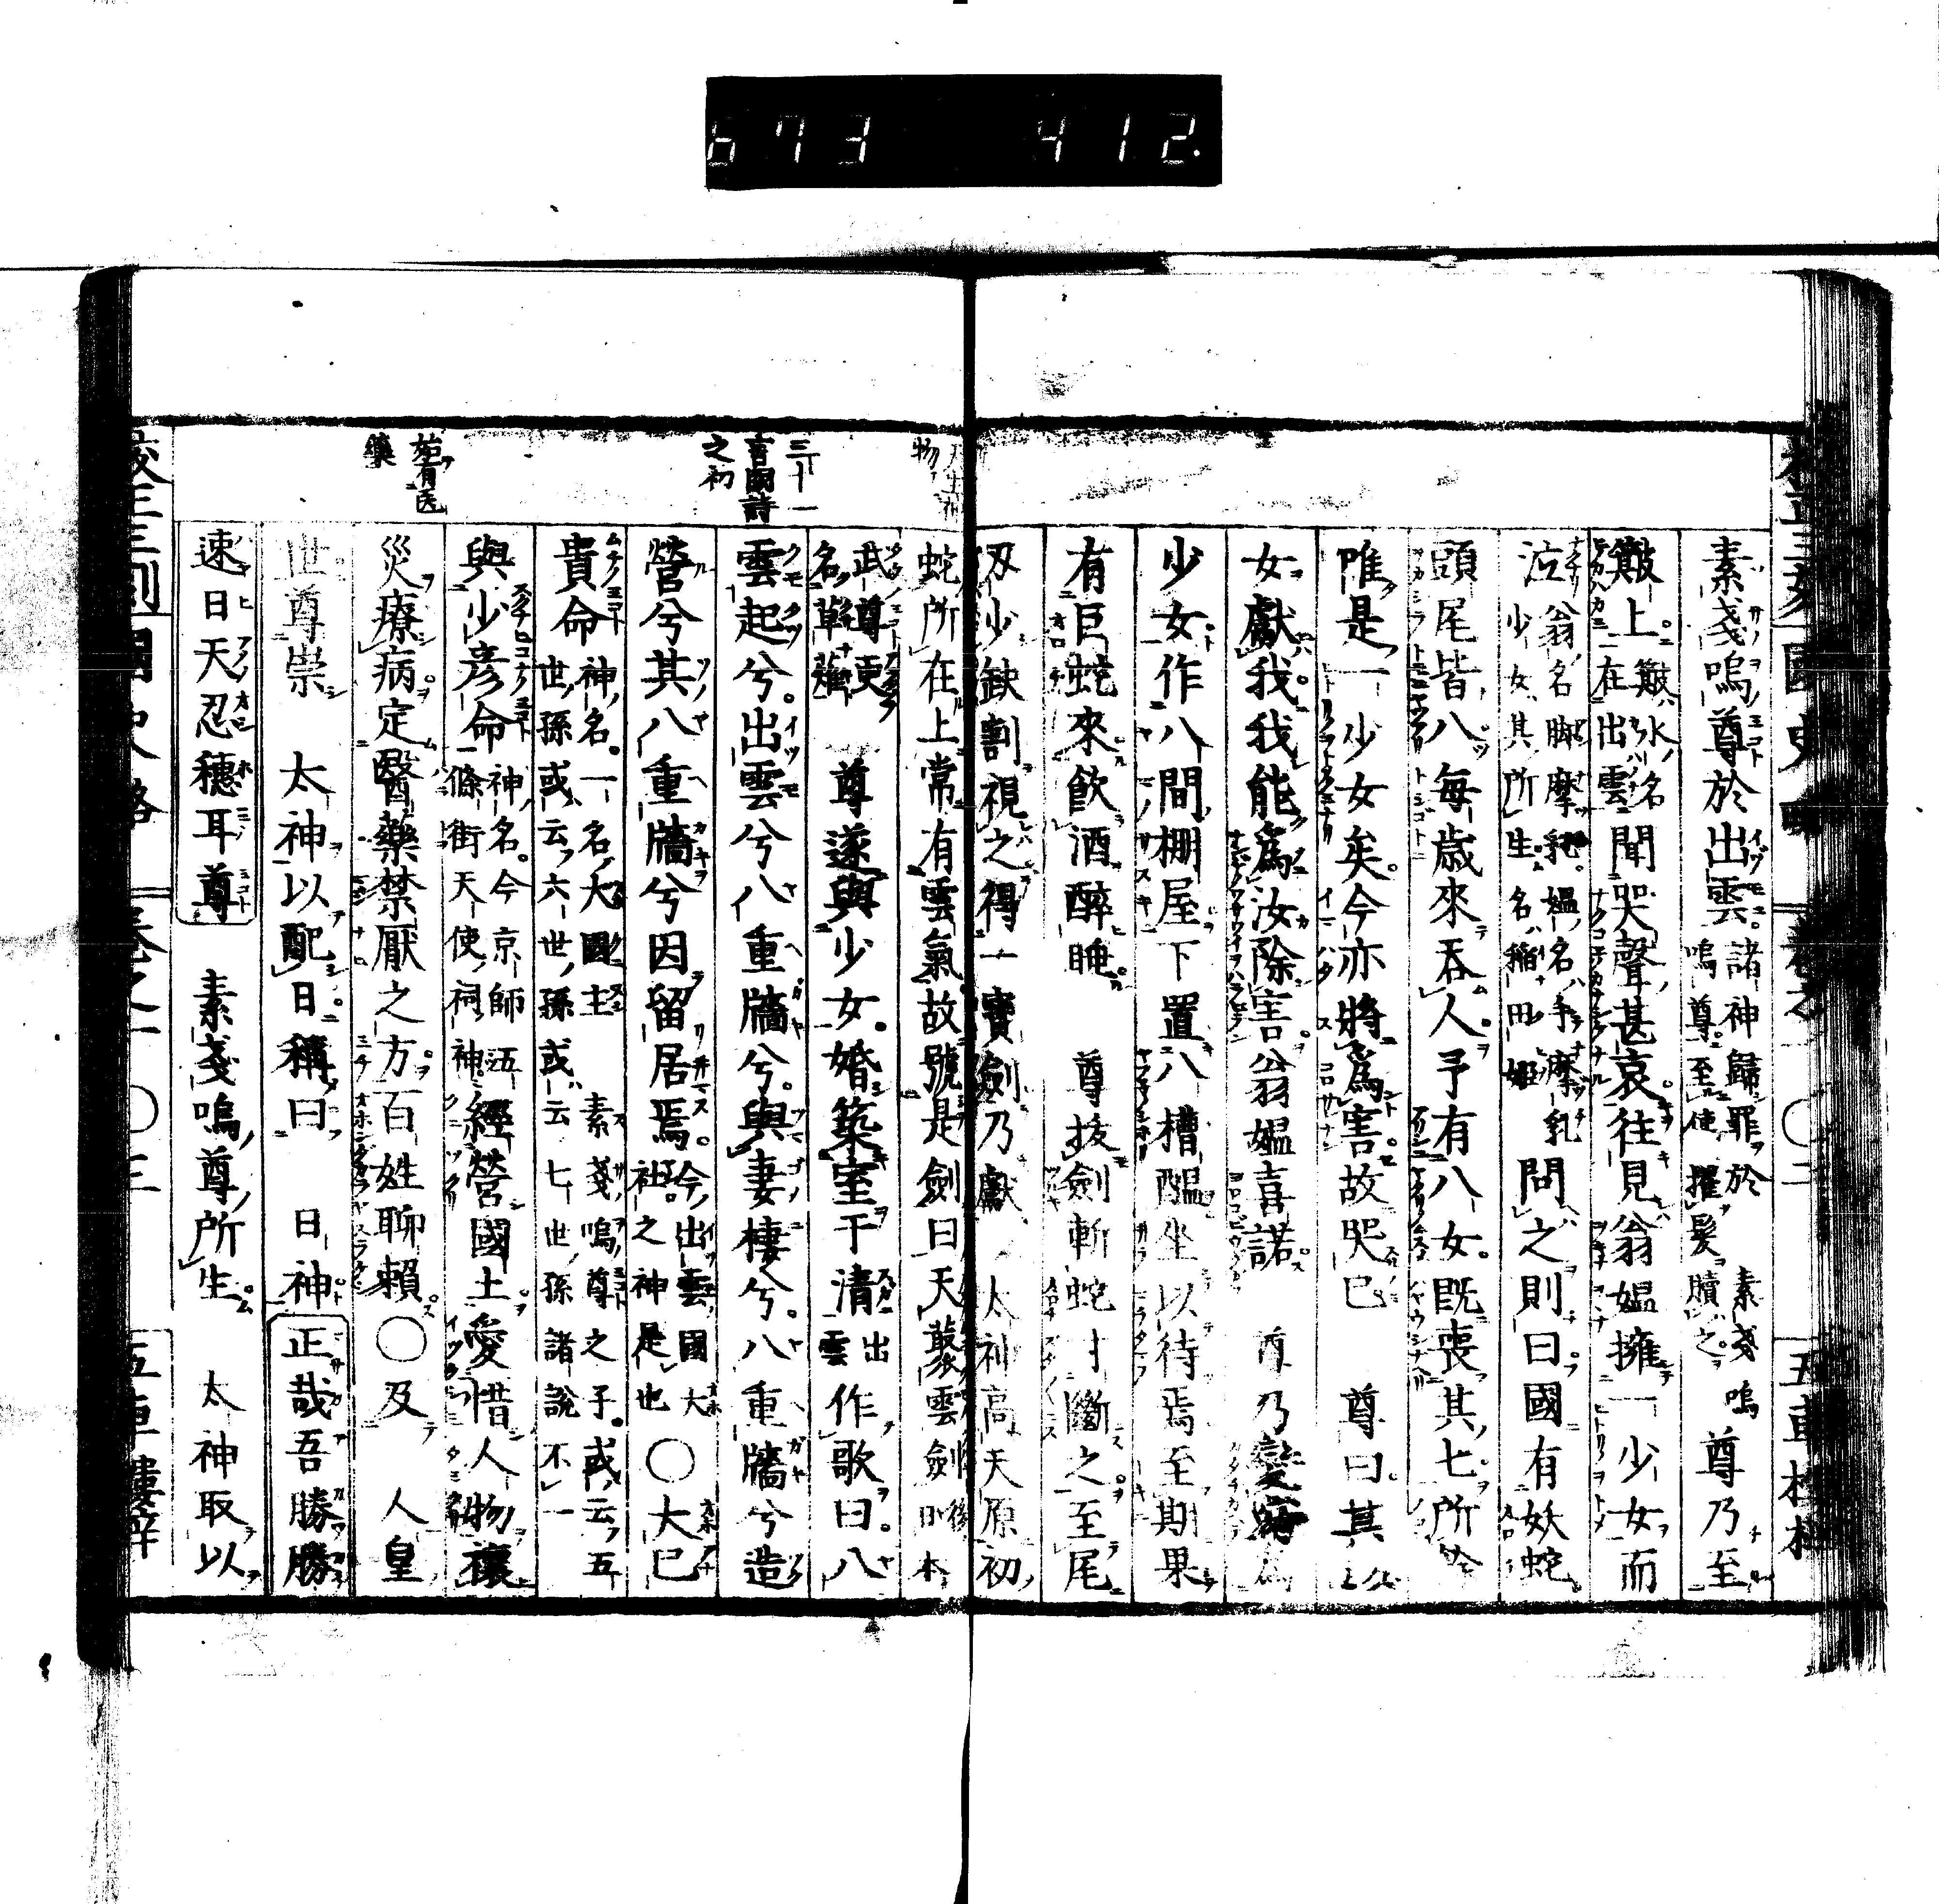 673 412.
素戔嗚尊於出雲諸神歸罪於素戔嗚尊至使擢髮贖之素戔嗚尊乃至
簸上簸水名在出雲聞哭聲甚哀往見翁媼擁一少女而
泣翁名脚摩乳媼名手摩乳少女其所生名稲田姫問之則曰國有妖蛇
頭尾皆八毎歳來呑人予有八女既喪其七所
唯是一少女矣今亦將爲害故哭已 尊曰其
女獻我我能爲汝除害翁媼喜諾 尊乃變
少女作八間棚屋下置八槽醞坐以待焉至期果
有巨蛇來飲酒醉睡 尊拔劍斬蛇寸斷之至尾
刄少缺割視之得一寶劍乃獻 太神高天原初
物
蛇所在上常有雲氣故號是劍曰天叢雲劍後日本
武尊更名草薙 尊遂與少女婚築室于清出雲作歌曰八
三十一言國詩之初
雲起兮出雲兮八重牆兮與妻棲兮八重牆兮造
營兮其八重牆兮因留居焉今出雲國大社之神是也○大已
貴命神名一名大國主素戔嗚尊之子或云五世孫或云六世孫或云七世孫諸說不一
與少彦命神名今京師五條街天使祠神經營國土愛惜人物禳
始有医藥
災療病定醫藥禁厭之方百姓聊賴○及 人皇
世尊崇 太神以配日稱曰 日神正哉吾勝勝
速日天忍穗耳尊 素戔嗚尊所生 太神取以
國史略 卷之一 ○三